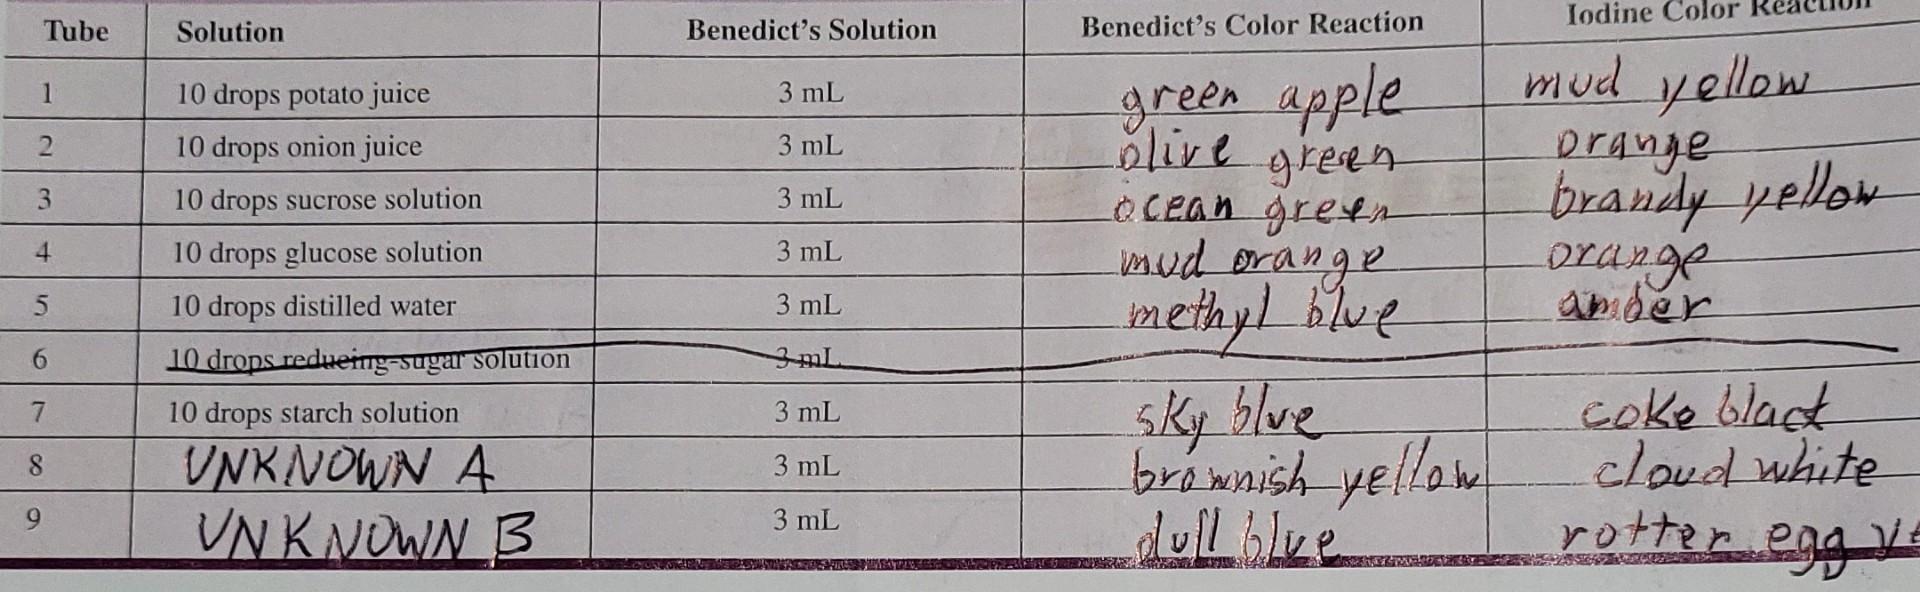 Tube Solution Benedict's Solution Benedict's Color Reaction Iodine Color Reaction
1 10 drops potato juice 3 mL green apple mud yellow
2 10 drops onion juice 3 mL olive green orange
3 10 drops sucrose solution 3 mL ocean green brandy yellow
4 10 drops glucose solution 3 mL mud orange orange
5 10 drops distilled water 3 mL methyl blue amber
6 10 drops reducing-sugar solution 3 mL
7 10 drops starch solution 3 mL sky blue coke black
8 UNKNOWN A 3 mL brownish yellow cloud white
9 UNKNOWN B 3 mL dull blue rotten egg